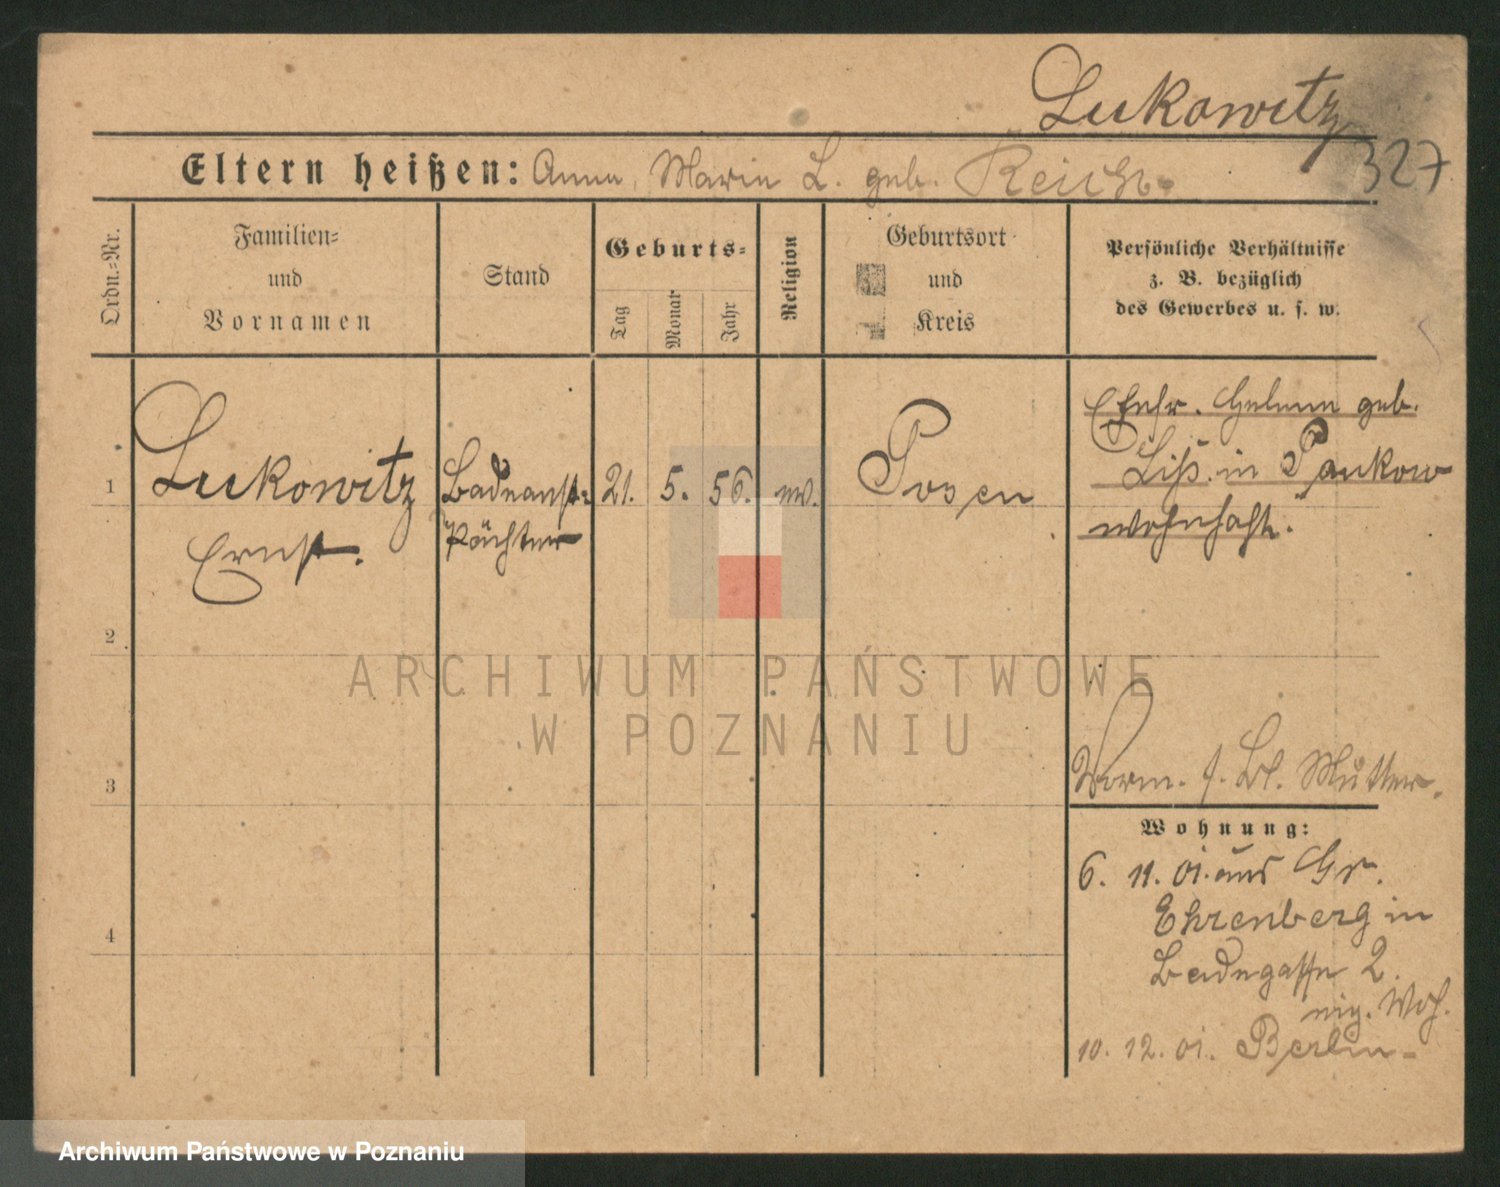 Lukowitz
327
Eltern heißen: Anna, Maria L. geb. Reich.
Ordn.-Nr.
Familien-
und
Vornamen
Stand
Geburts-
Tag
Monat
Jahr
Religion
Geburtsort
und
Kreis
Persönliche Verhältnisse
z. B. bezüglich
des Gewerbes u. s. w.
1
Lukowitz
Ernst.
Badeanst.-
Pächter
21. 5. 56.
ev.
Posen
Ehefr. Helene geb.
Liss. in Pankow
wohnhaft.
2
3
4
Verm. s. Bl. Mutter.
Wohnung:
6. 11. 01. aus Gr.
Ehrenberg in
Badegasse 2.
eig. Woh.
10. 12. 01. Berlin-
ARCHIWUM PAŃSTWOWE
W POZNANIU
Archiwum Państwowe w Poznaniu